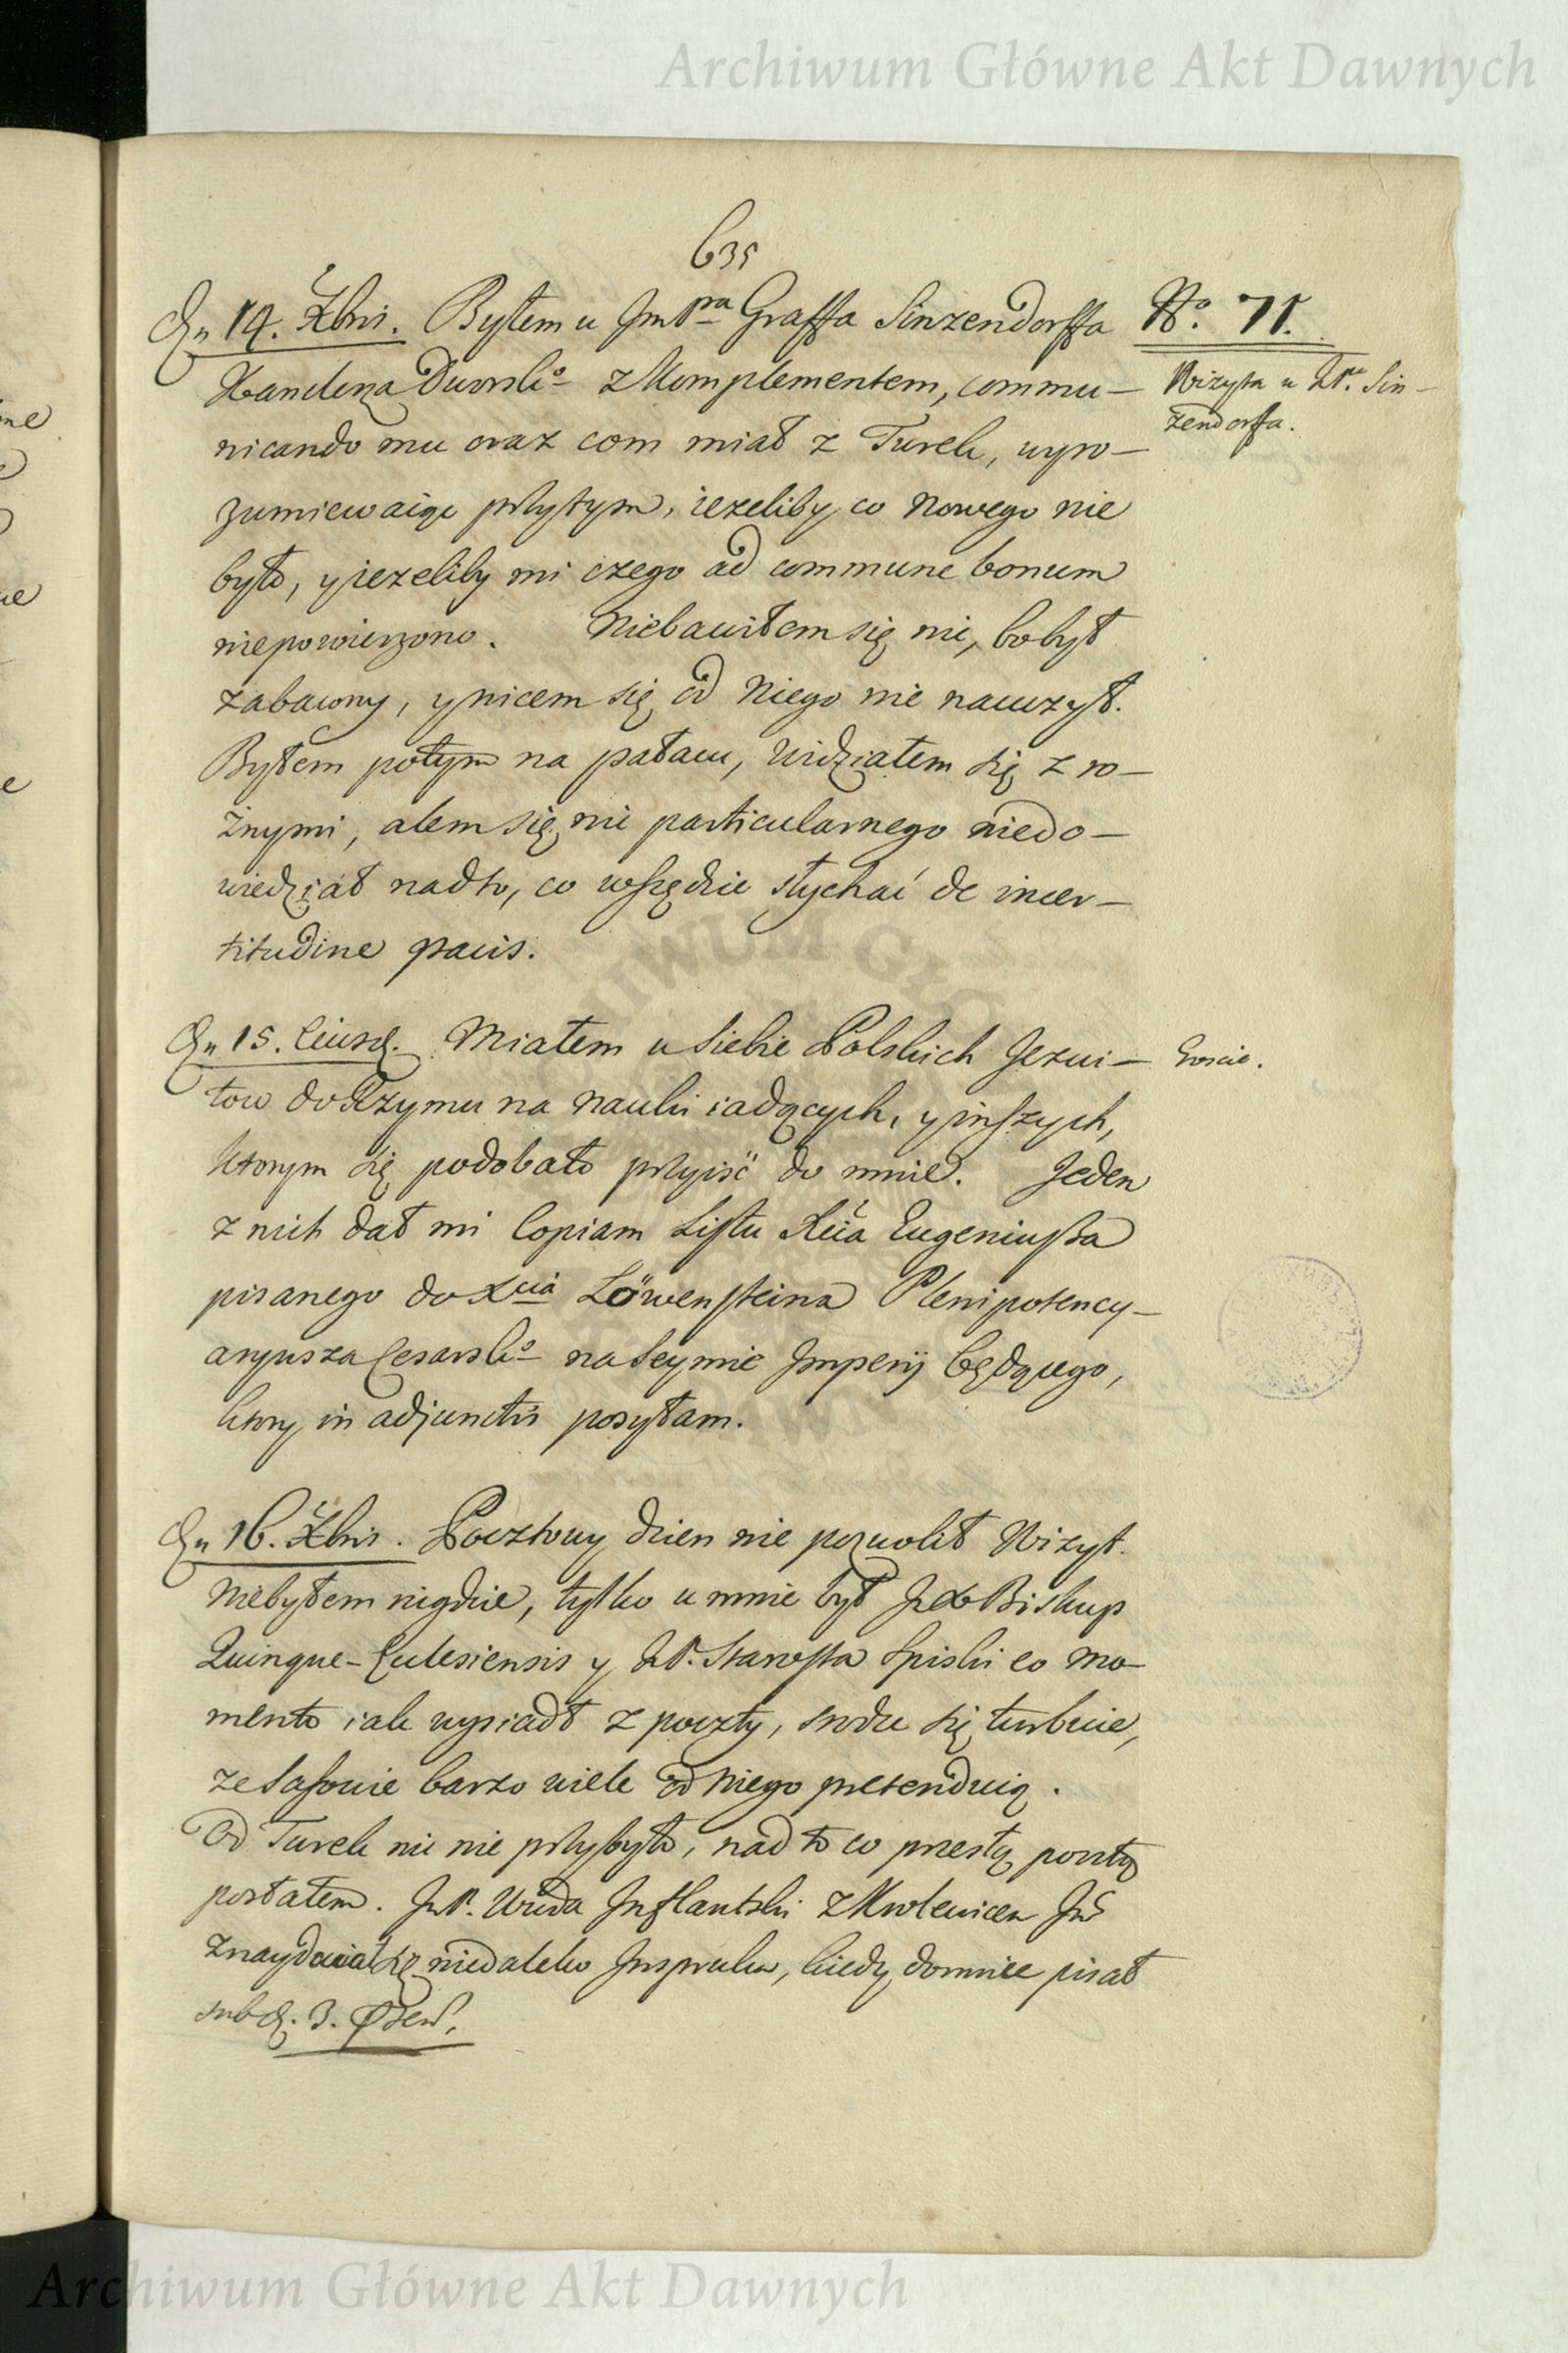 Archiwum Główne Akt Dawnych
635
Dn 14. Xbris. Byłem u JmPna Graffa Sinzendorffa
No. 71.
Kanclerza Dworskio z Komplementem, commu-
Wizyta u JPa Sin-
zendorffa.
nicando mu oraz com miał z Turek, wyro-
zumiewaiąc przytym, ieżeliby co nowego nie
było, y ieżeliby mi czego ad commune bonum
niepowierzono. Niebawiłem się nic, bo był
zabawny, y nicem się od Niego nie nauczył.
Byłem potym na pałacu, widziałem się z ro-
żnymi, alem się nic particularnego niedo-
wiedział nad to, co wszędzie słychać de incer-
titudine pacis.
Dn 15. Eiusd. Miałem u Siebie Polskich Jezui-
Goscie.
tow do Rzymu na nauki iadących, y inszych,
ktorym się podobało przyiść do mnie. Jeden
z nich dał mi Copiam Listu Xcia Eugeniusza
pisanego do Xcia Löwensteina Plenipotency-
aryusza Cesarskio na Seymie Imperij będącego,
ktory in adjunctis posyłam.
Dn 16. Xbris. Pocztowy dzien nie pozwolił Wizyt.
Niebyłem nigdzie, tylko u mnie był JX Biskup
Quinque-Ecclesiensis y JP. Starosta Spiski eo mo-
mento iak wysiadł z poczty, srodze się turbuie,
ze Sasowie barzo wiele od Niego pretenduią.
Od Turek nic nie przybyło, nad to co przeszłą pocztą
posłałem. JmP. Wwda Inflantski z Krolewicem Jm
znaydował się niedaleko Inspruku, kiedy do mnie pisał
sub d. 3. Praes.
Archiwum Główne Akt Dawnych